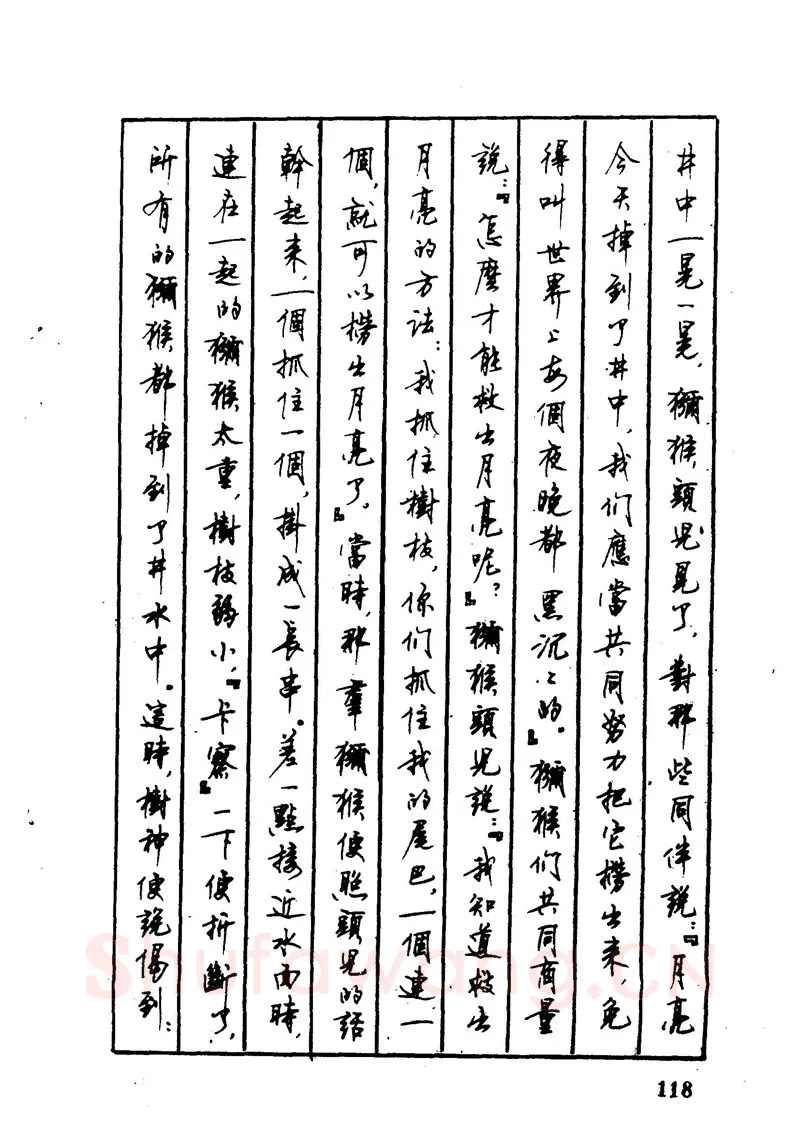 井中一晃一晃，獼猴頭兒見了，對那些同伴說：『月亮
今天掉到了井中，我们應當共同努力把它撈出來，免
得叫世界上每個夜晚都黑沉沉的。』獼猴们共同商量
說：『怎麼才能救出月亮呢？』獼猴頭兒說：『我知道救出
月亮的方法：我抓住樹枝，你们抓住我的尾巴，一個連一
個，就可以撈出月亮了。』當時，那羣獼猴便照頭兒的話
幹起來，一個抓住一個，掛成一長串。差一點接近水面時，
連在一起的獼猴太重，樹枝弱小，『卡察』一下便折斷了，
所有的獼猴都掉到了井水中。這時，樹神便說偈到：
Shufawang.CN
118